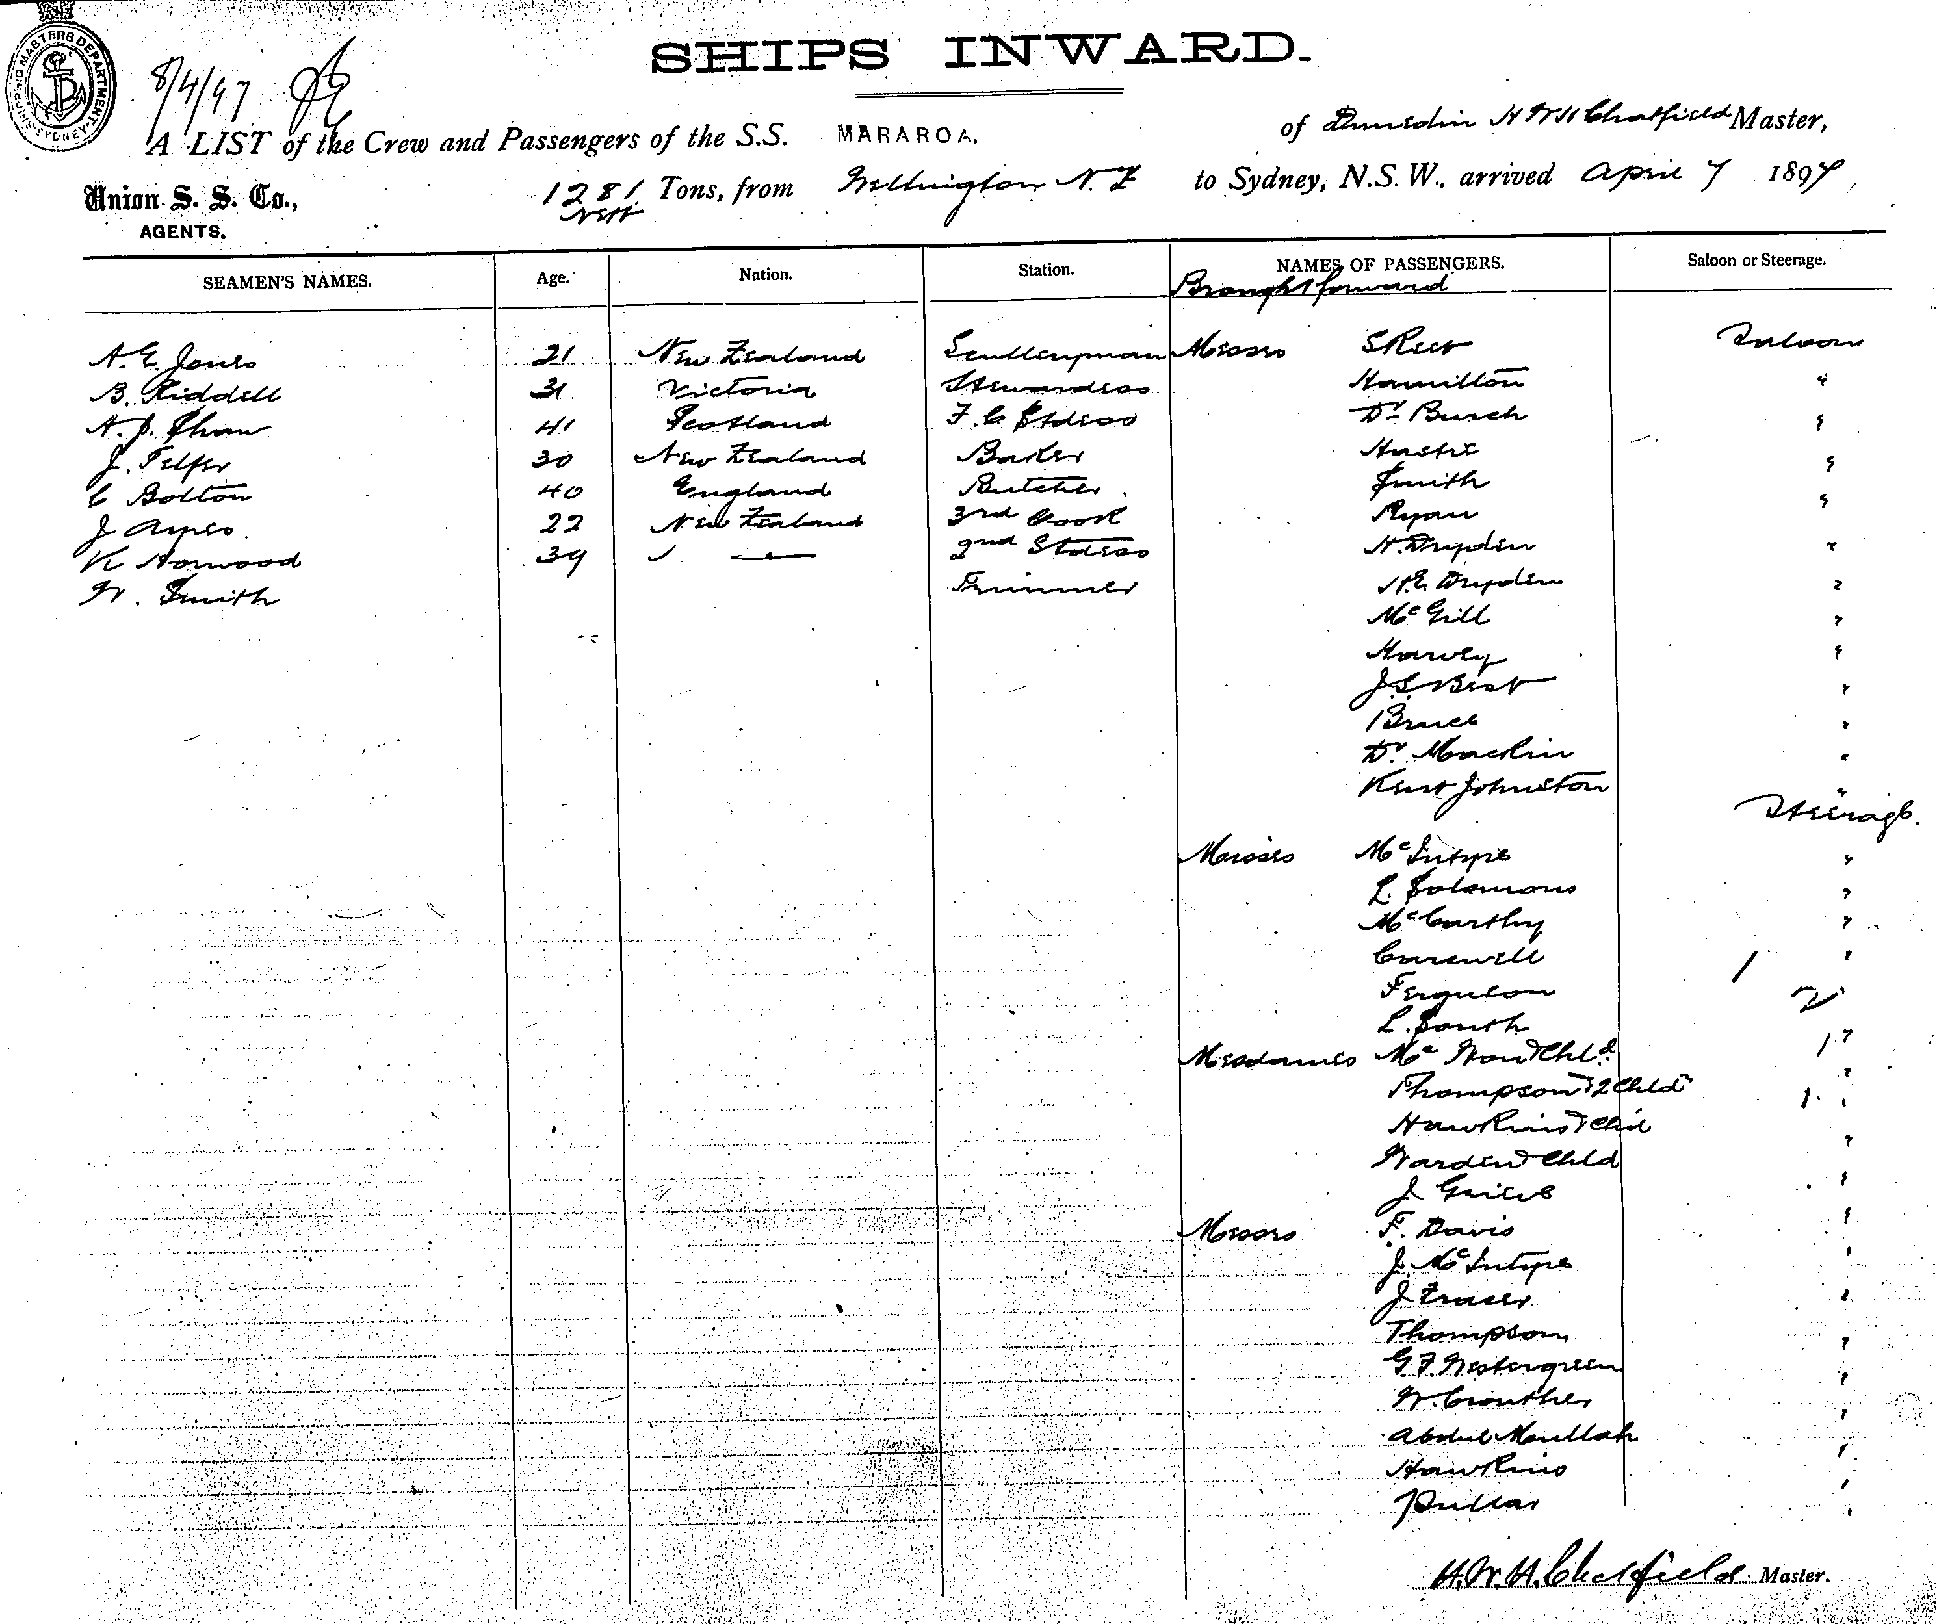 SHIPS INWARD.
8/4/97
A LIST of the Crew and Passengers of the S.S. MARAROA. of Dunedin H W H Chatfield Master,
Union S. S. Co., AGENTS.
1281 Nett Tons, from Wellington N.Z to Sydney, N.S.W., arrived April 7 1897,
SEAMEN'S NAMES. Age. Nation. Station. NAMES OF PASSENGERS. Saloon or Steerage.
Brought forward
A. E. Jones 21 New Zealand Sculleryman Messrs Saloon
B. Riddell 31 Victoria Stewardess Hamilton "
41 Scotland F. C. Stdess Dr. Busch "
J. Telfer 30 New Zealand Baker "
C Bolton 40 England Butcher Smith "
J Ayres. 22 New Zealand 3rd Cook Ryan "
K Norwood 39 " " 2nd Stdess H. Dryden "
W. Smith Trimmer H. E. Dryden "
McGill "
Harvey "
J. S. Best "
Bruce "
Dr. Mackin "
Kent Johnston "
Steerage.
Messrs McIntyre "
L. Solomons "
McCarthy "
"
Ferguson
L. South
Mesdames Mc & Chld. 1 "
Thompson & 2 Chld "
Hawkins & Chd 1 "
Warden & Chld "
J "
Messrs F. Davis "
J. McIntyre "
J Fraser "
Thompson "
G F. Westergreen "
W. Crowther "
Abdul Moullah "
Hawkins "
"
H. W. H. Chatfield Master.